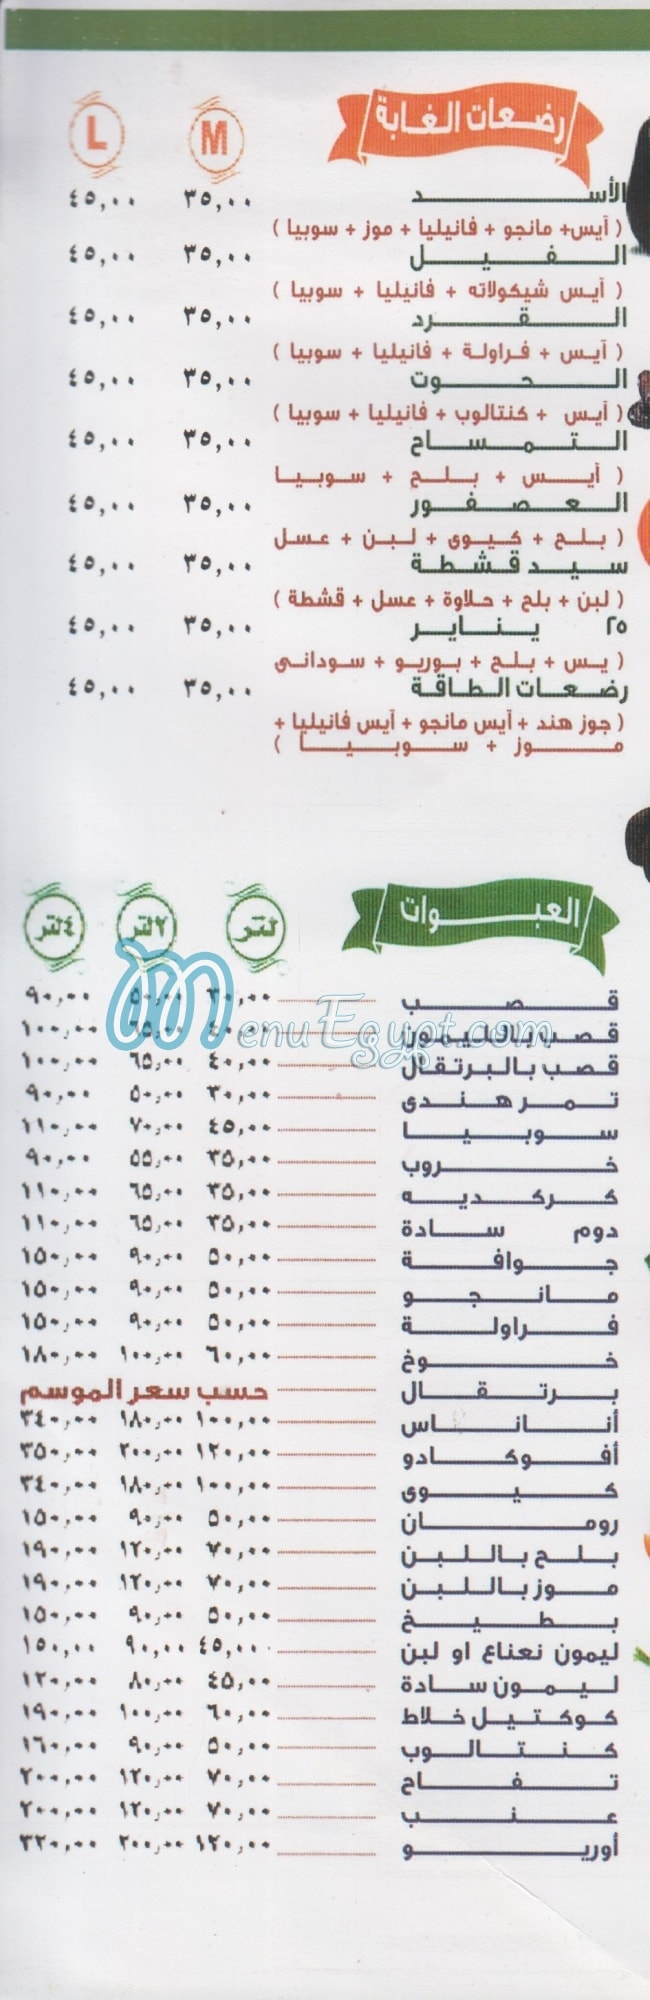 رضعات الغابة M L
الأسد ٣٥,٠٠ ٤٥,٠٠
( آيس+ مانجو + فانيليا + موز + سوبيا )
الفيل ٣٥,٠٠ ٤٥,٠٠
( آيس شيكولاته + فانيليا + سوبيا )
القرد ٣٥,٠٠ ٤٥,٠٠
( آيس + فراولة + فانيليا + سوبيا )
الحوت ٣٥,٠٠ ٤٥,٠٠
( آيس + كنتالوب + فانيليا + سوبيا )
التمساح ٣٥,٠٠ ٤٥,٠٠
( آيس + بلح + سوبيا
العصفور ٣٥,٠٠ ٤٥,٠٠
( بلح + كيوى + لبن + عسل
سيد قشطة ٣٥,٠٠ ٤٥,٠٠
( لبن + بلح + حلاوة + عسل + قشطة )
٢٥ يناير ٣٥,٠٠ ٤٥,٠٠
( يس + بلح + بوريو + سودانى
رضعات الطاقة ٣٥,٠٠ ٤٥,٠٠
( جوز هند + آيس مانجو + آيس فانيليا +
موز + سوبيا )
العبوات لتر ٢لتر ٤لتر
MenuEgypt.com
قصب ٣٠,٠٠ ٥٠,٠٠ ٩٠,٠٠
قصب بالليمون ٤٠,٠٠ ٦٥,٠٠ ١٠٠,٠٠
قصب بالبرتقال ٤٠,٠٠ ٦٥,٠٠ ١٠٠,٠٠
تمر هندى ٣٠,٠٠ ٥٠,٠٠ ٩٠,٠٠
سوبيا ٤٥,٠٠ ٧٠,٠٠ ١١٠,٠٠
خروب ٣٥,٠٠ ٥٥,٠٠ ٩٠,٠٠
كركديه ٣٥,٠٠ ٦٥,٠٠ ١١٠,٠٠
دوم سادة ٣٥,٠٠ ٦٥,٠٠ ١١٠,٠٠
جوافة ٥٠,٠٠ ٩٠,٠٠ ١٥٠,٠٠
مانجو ٥٠,٠٠ ٩٠,٠٠ ١٥٠,٠٠
فراولة ٥٠,٠٠ ٩٠,٠٠ ١٥٠,٠٠
خوخ ٦٠,٠٠ ١٠٠,٠٠ ١٨٠,٠٠
برتقال حسب سعر الموسم
أناناس ١٠٠,٠٠ ١٨٠,٠٠ ٣٤٠,٠٠
أفوكادو ١٢٠,٠٠ ٢٠٠,٠٠ ٣٥٠,٠٠
كيوى ١٠٠,٠٠ ١٨٠,٠٠ ٣٤٠,٠٠
رومان ٥٠,٠٠ ٩٠,٠٠ ١٥٠,٠٠
بلح باللبن ٧٠,٠٠ ١٢٠,٠٠ ١٩٠,٠٠
موز باللبن ٧٠,٠٠ ١٢٠,٠٠ ١٩٠,٠٠
بطيخ ٥٠,٠٠ ٩٠,٠٠ ١٥٠,٠٠
ليمون نعناع او لبن ٤٥,٠٠٠ ٩٠,٠٠ ١٥٠,٠٠
ليمون سادة ٤٥,٠٠ ٨٠,٠٠ ١٢٠,٠٠
كوكتيل خلاط ٦٠,٠٠ ١٠٠,٠٠ ١٩٠,٠٠
كنتالوب ٥٠,٠٠ ٩٠,٠٠ ١٦٠,٠٠
تفاح ٧٠,٠٠ ١٢٠,٠٠ ٢٠٠,٠٠
عنب ٧٠,٠٠ ١٢٠,٠٠ ٢٠٠,٠٠
أوريو ١٢٠,٠٠ ٢٠٠,٠٠ ٣٢٠,٠٠